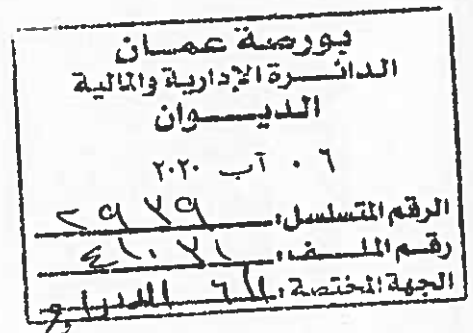 بورصة عمان
الدائرة الإدارية والمالية
الديوان
٠٦ آب ٢٠٢٠
الرقم المتسلسل: ٢٩٧٩
رقم الملف:
الجهة المختصة: